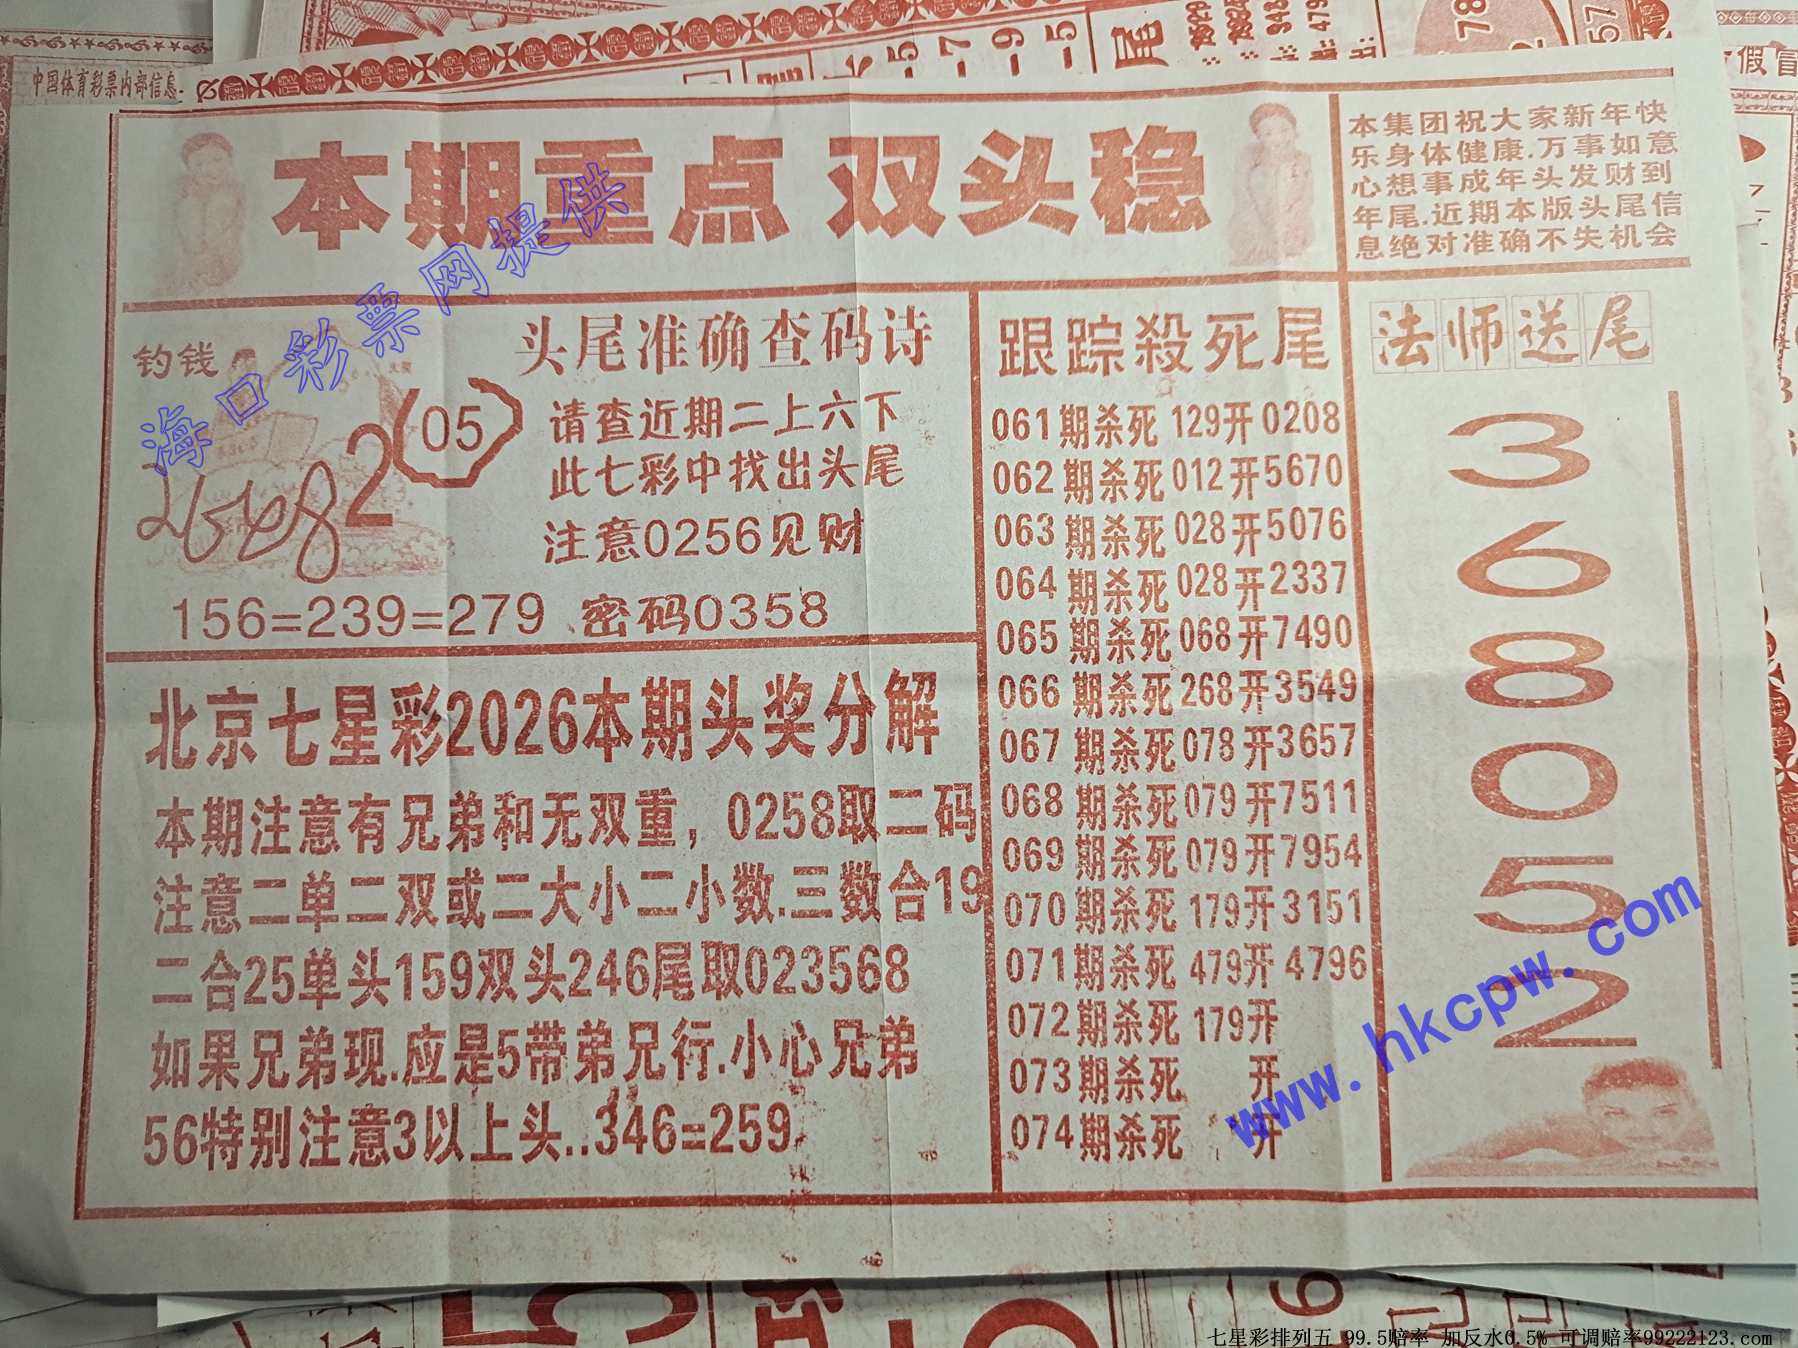 中国体育彩票内部信息
本期重点 双头稳
本集团祝大家新年快
乐身体健康.万事如意
心想事成年头发财到
年尾.近期本版头尾信
息绝对准确不失机会
海口彩票网提供
钓钱
2(05)
26482
头尾准确查码诗
请查近期二上六下
此七彩中找出头尾
注意0256见财
156=239=279 密码0358
北京七星彩2026本期头奖分解
本期注意有兄弟和无双重，0258取二码
注意二单二双或二大小二小数.三数合19
二合25单头159双头246尾取023568
如果兄弟现.应是5带弟兄行.小心兄弟
56特别注意3以上头..346=259
跟踪殺死尾
061期杀死129开0208
062期杀死012开5670
063期杀死028开5076
064期杀死028开2337
065期杀死068开7490
066期杀死268开3549
067期杀死078开3657
068期杀死079开7511
069期杀死079开7954
070期杀死179开3151
071期杀死479开4796
072期杀死179开
073期杀死 开
074期杀死 开
法师送尾
3
6
8
0
5
2
www.hkcpw.com
七星彩排列五 99.5赔率 加反水0.5% 可调赔率99222123.com